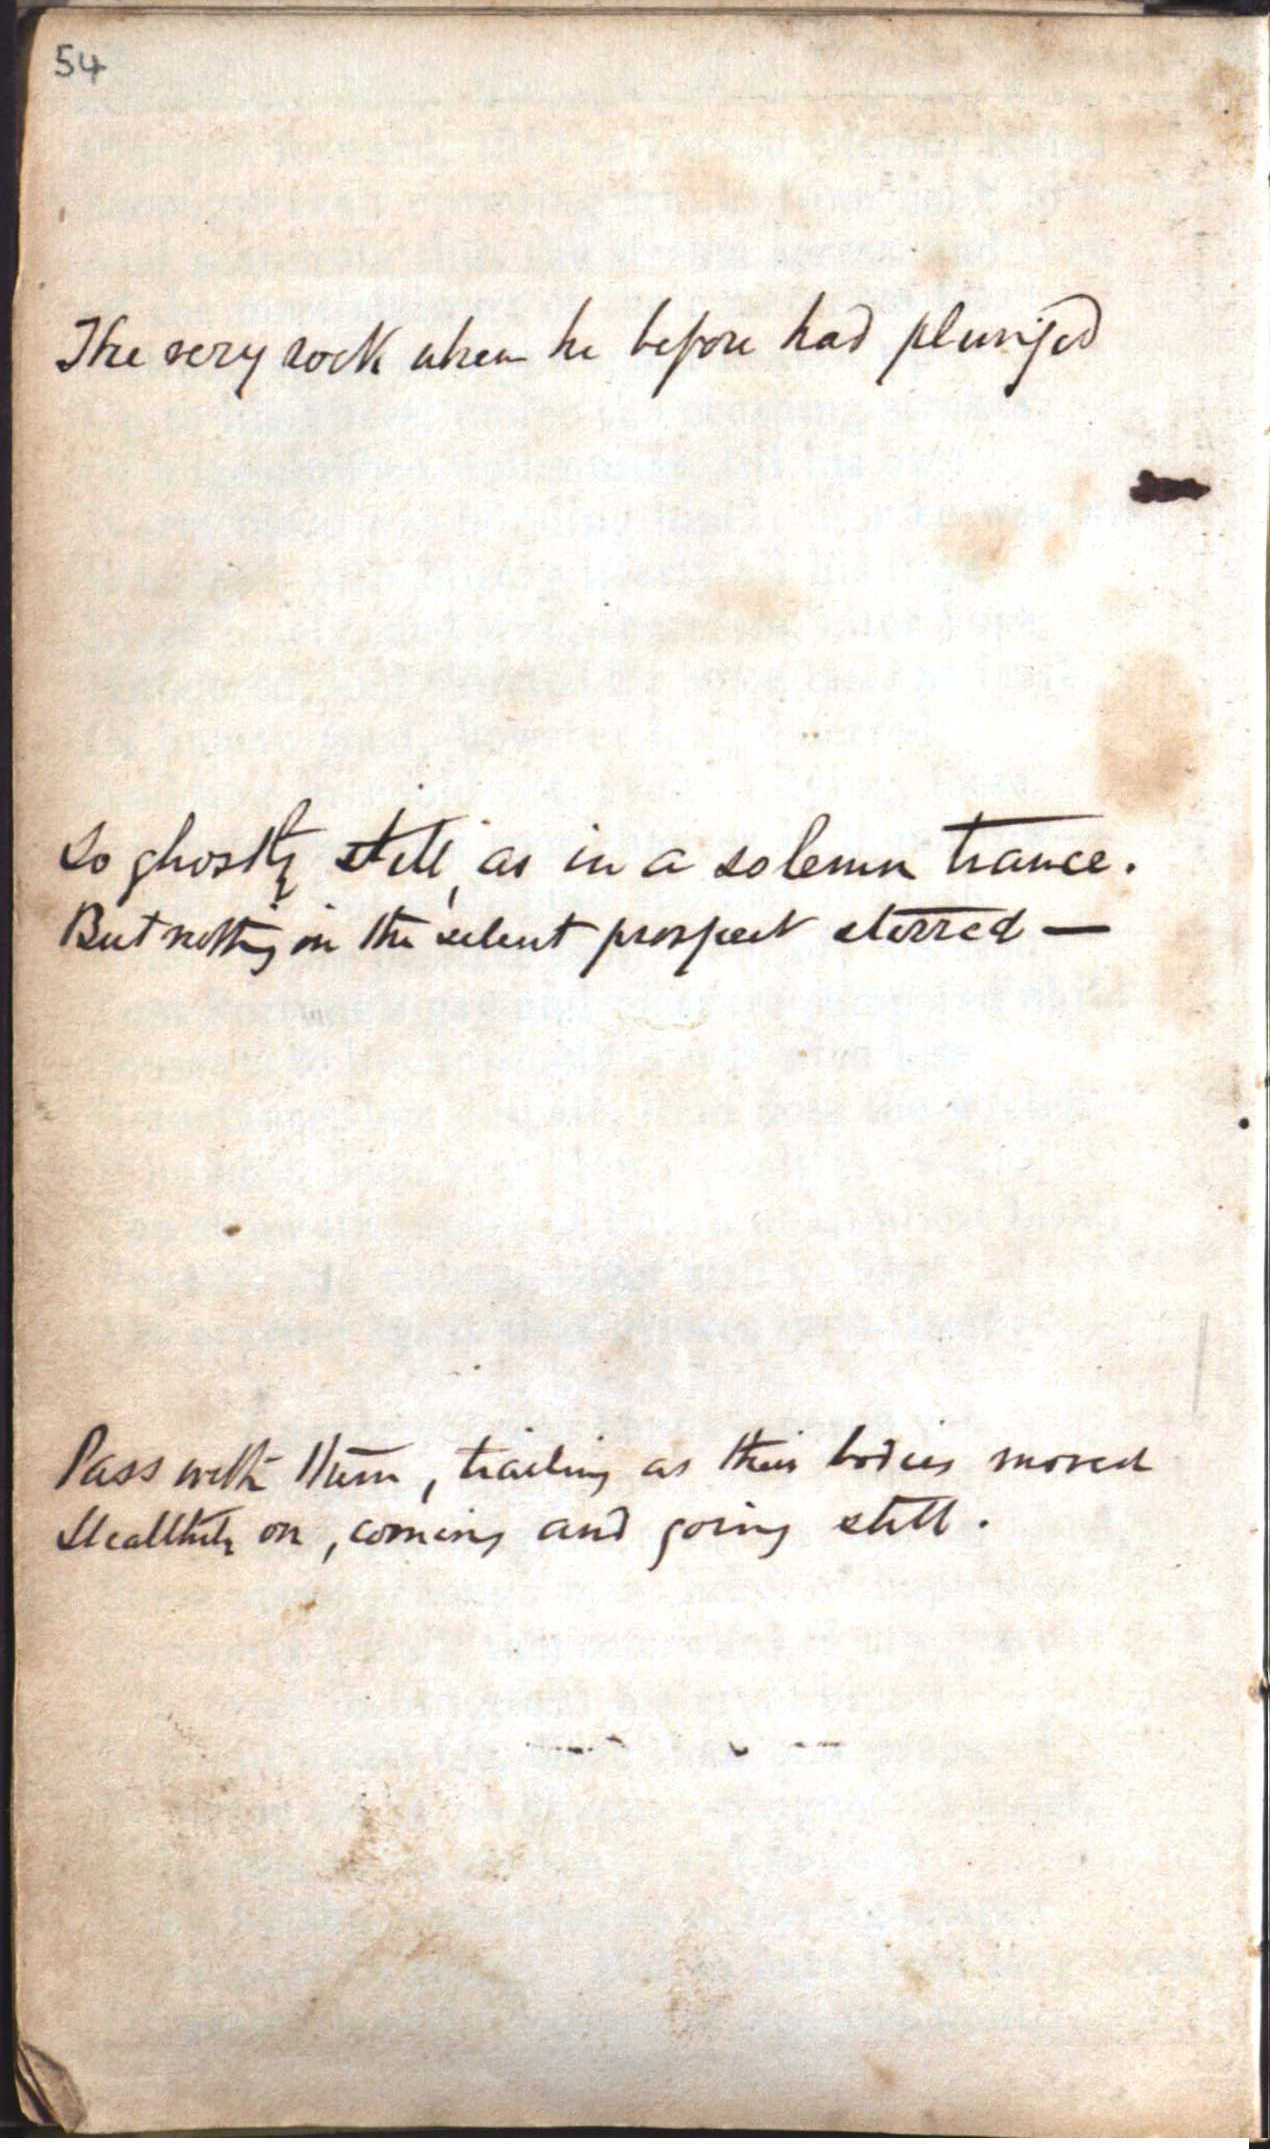 54
The very rock when he before had plunged
So ghostly still, as in a solemn trance.
But nothing in the silent prospect stirred —
Pass with them, trailing as their bodies moved
Stealthily on, coming and going still.